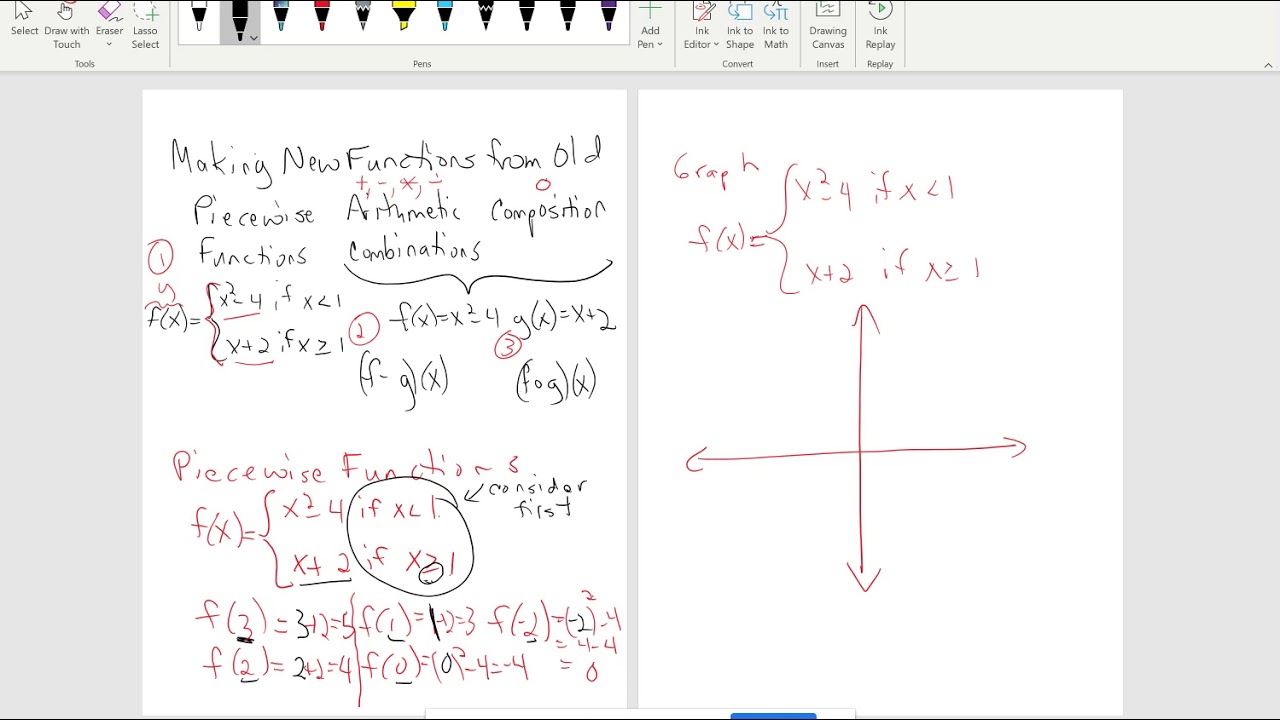 Select Draw with Touch Eraser Lasso Select Add Pen Ink Editor Ink to Shape Ink to Math Drawing Canvas Ink Replay
Tools Pens Convert Insert Replay
Making New Functions from Old
+, -, ×, ÷ o
Piecewise Arithmetic Composition
Functions Combinations
①
y
f(x) = { x² - 4 if x < 1
x + 2 if x ≥ 1
② f(x) = x² - 4 g(x) = x + 2
③
(f - g)(x) (f o g)(x)
Piecewise Functions
f(x) = { x² - 4 if x < 1
x + 2 if x ≥ 1
← consider
first
f(3) = 3+2=5 f(1) = 1+2=3 f(-2) = (-2)² - 4
= 4 - 4
f(2) = 2+2=4 f(0) = (0)² - 4 = -4 = 0
Graph
f(x) = { x² - 4 if x < 1
x + 2 if x ≥ 1